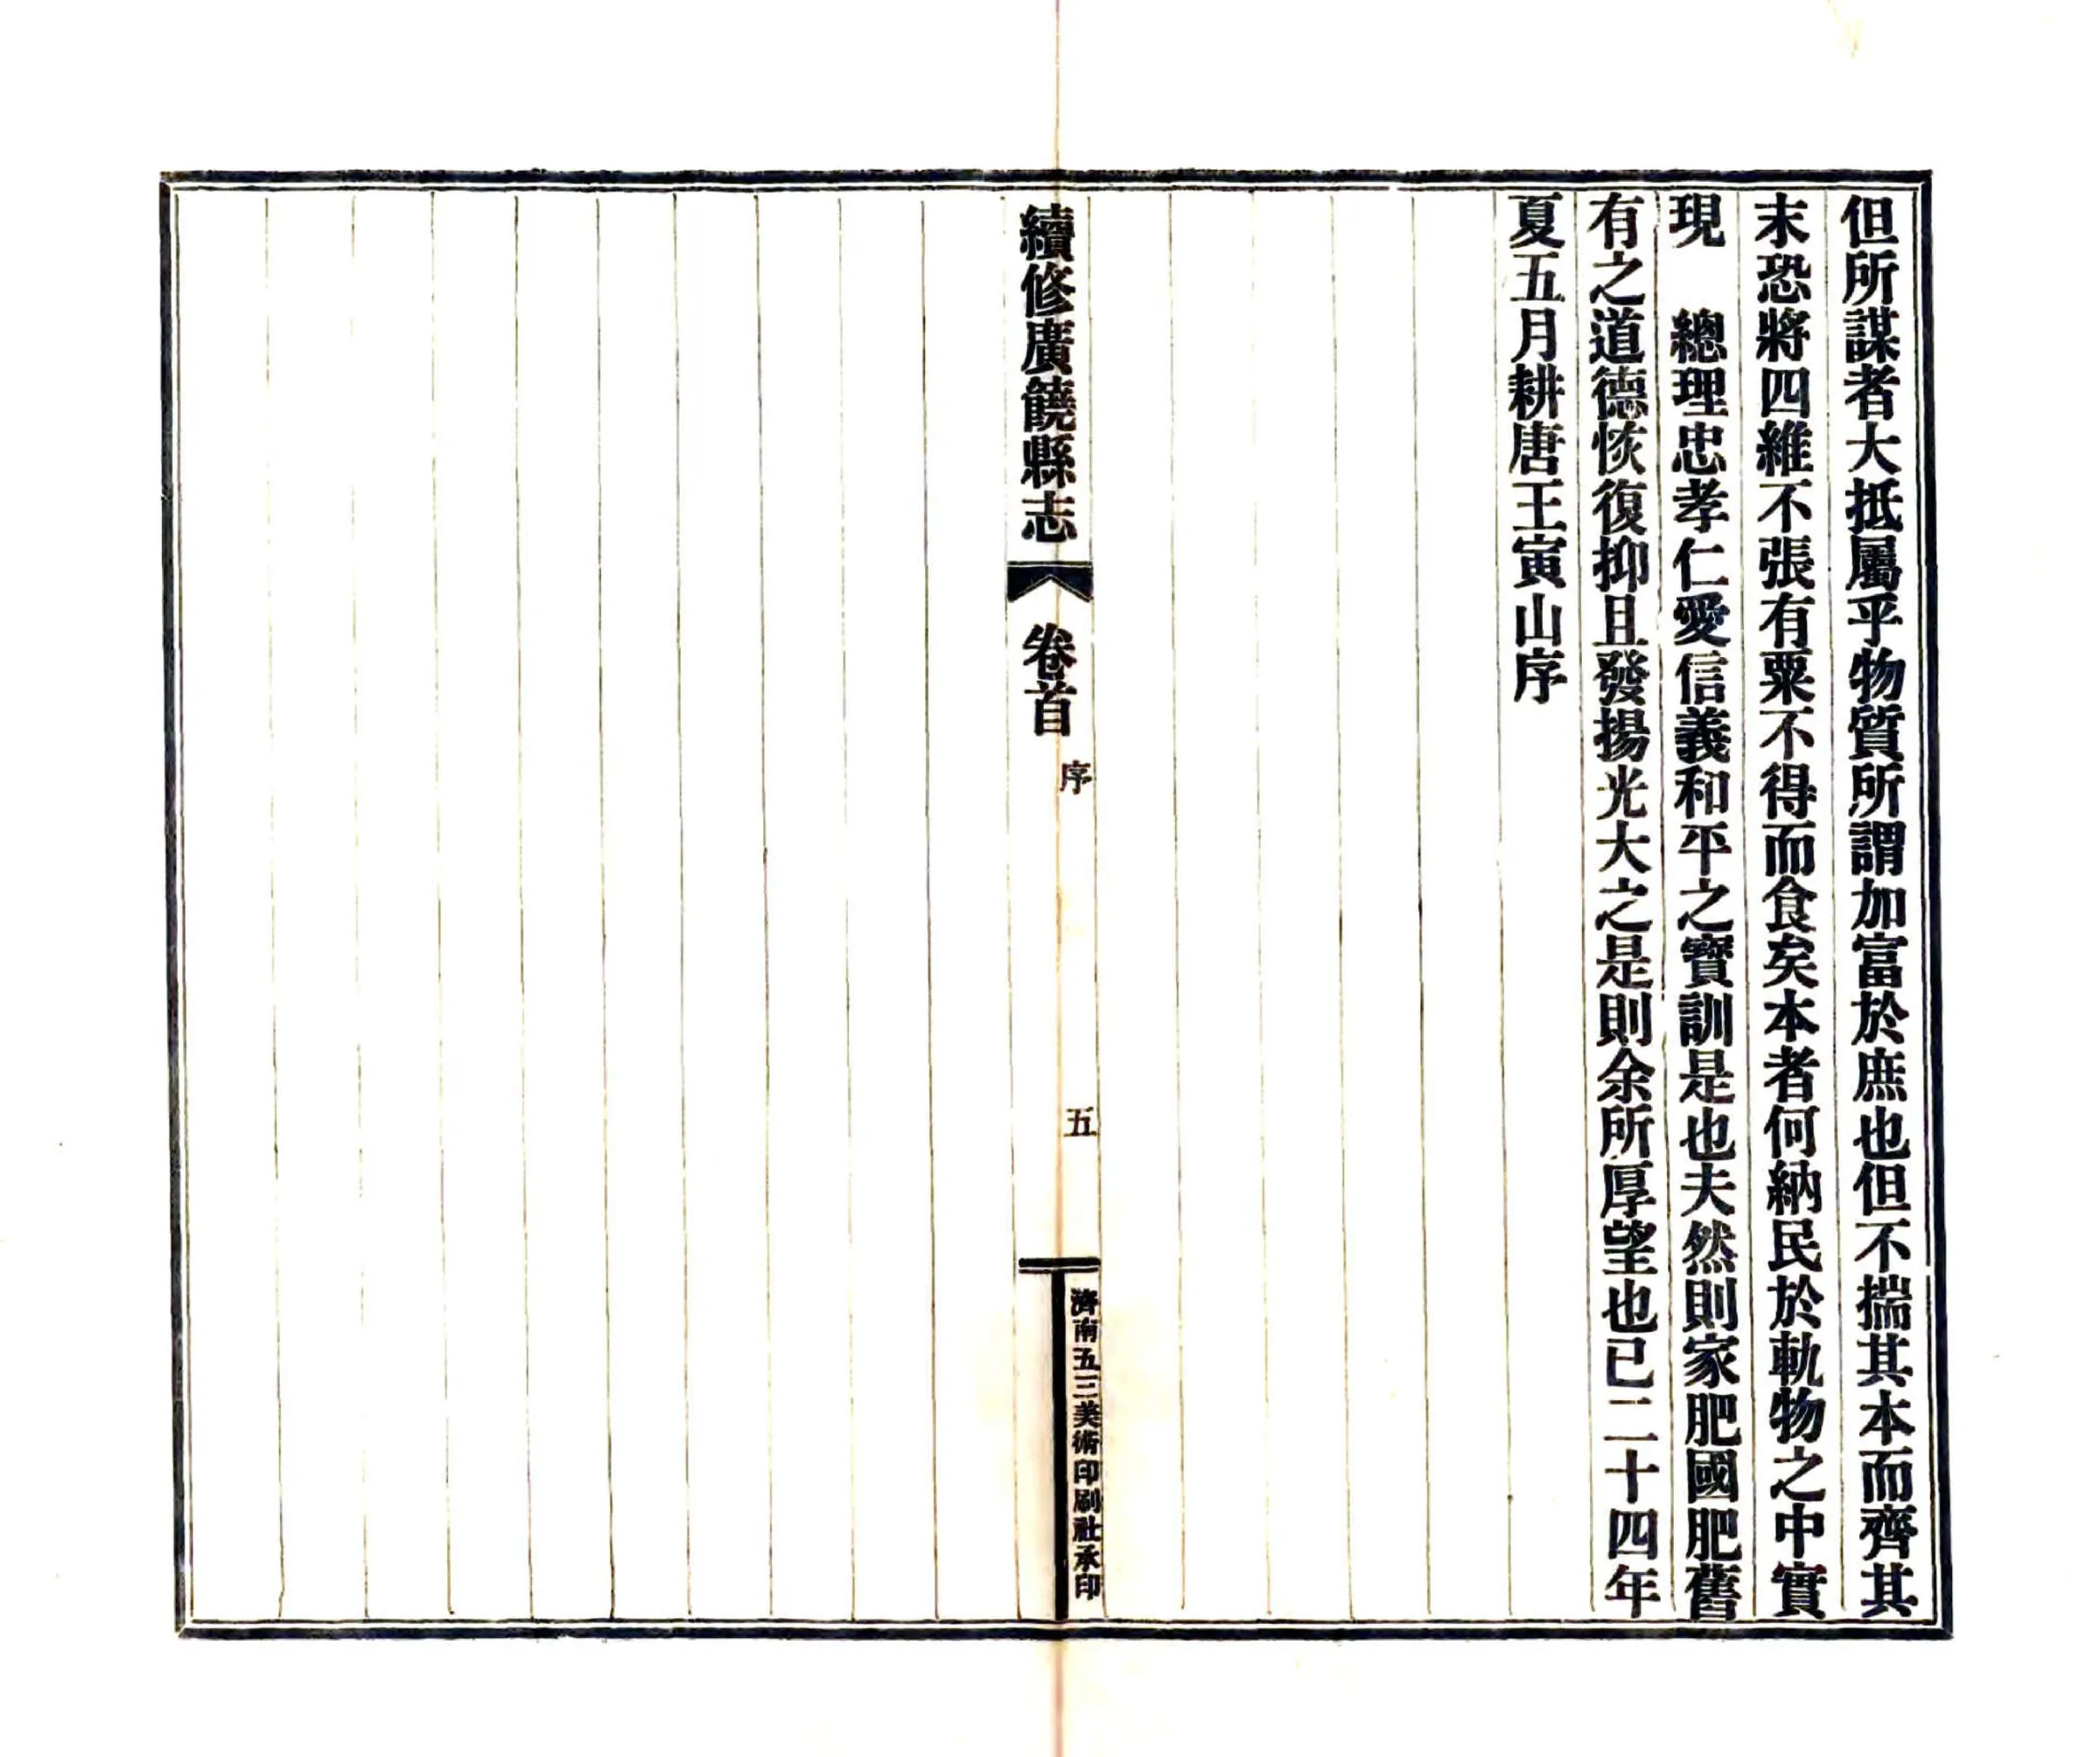 但所謀者大抵屬乎物質所謂加富於庶也但不揣其本而齊其
末恐將四維不張有粟不得而食矣本者何納民於軌物之中實
現　總理忠孝仁愛信義和平之寶訓是也夫然則家肥國肥舊
有之道德恢復抑且發揚光大之是則余所厚望也已二十四年
夏五月耕唐王寅山序
續修廣饒縣志　卷首　序　五　濟南五三美術印刷社承印